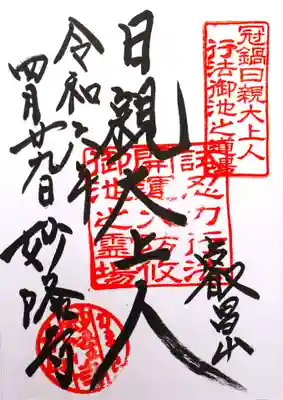 冠鍋日親大上人
行法御池之霊場
叡昌山
日親大上人
御池之霊場
令和六年
四月廿九日 妙隆寺